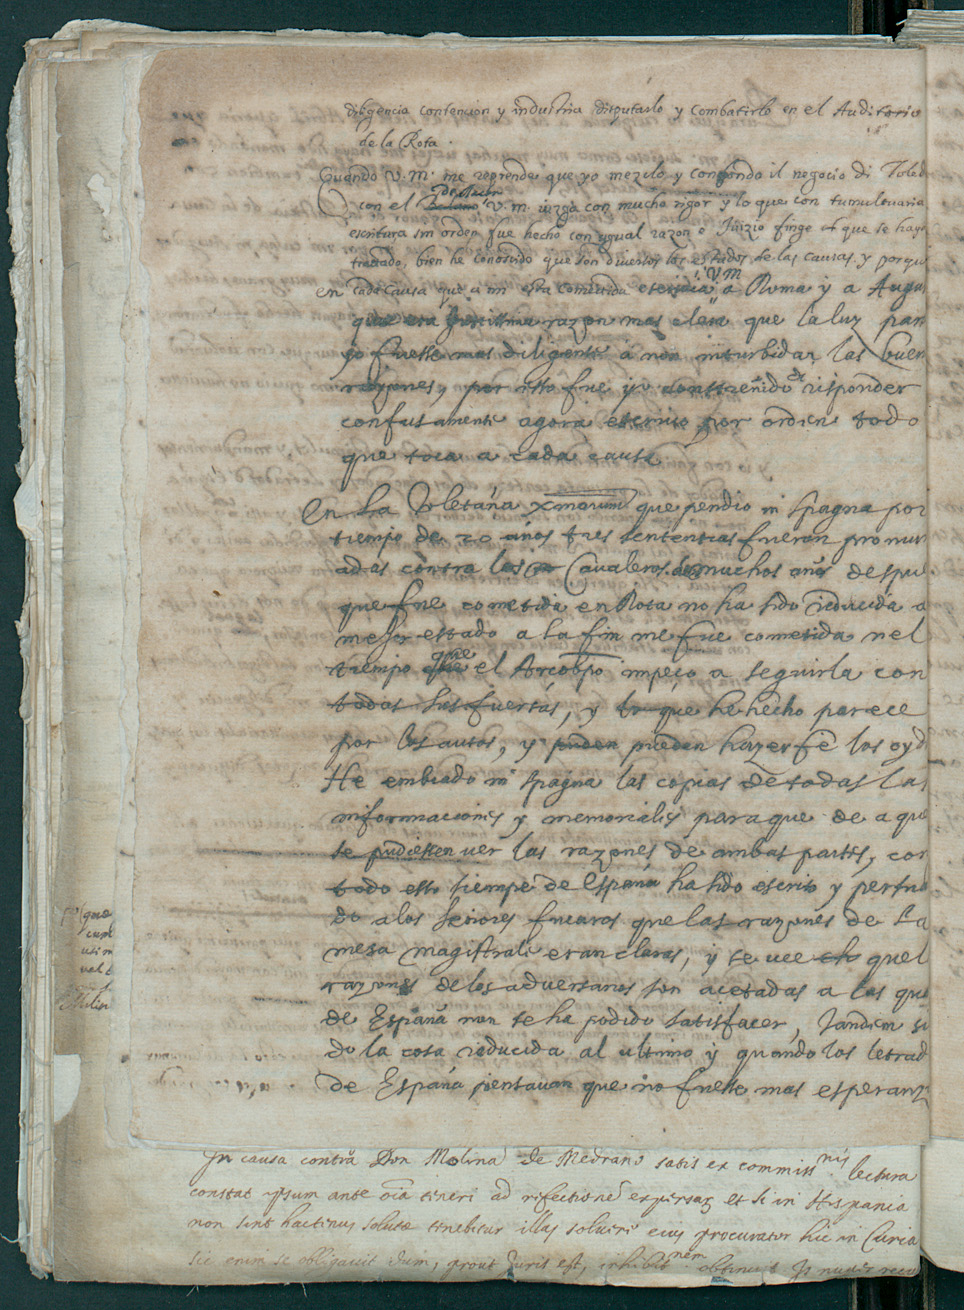 diligencia contencion y industria disputarlo y combatirlo en el Auditorio
de la Rota.
Quando V.M. me reprende que yo mezclo y confondo il negocio di Toled
con el V.M. iuzga con mucho rigor y lo que con tumultuaria
escritura sin orden fue hecho con ygual razon o Juizio finge que se haya
trattado, bien he conoscido que son diversos los estados de las causas, y porque
en cada causa que a mi esta cometida V.M. a Roma y a Augu
razon mas clara que la luz par
yo fuesse mas diligente a non inturbidar las buen
razones, por esto fue yo constreñido risponder
confusamente agora escrivo por orden todo
que toca a cada causa
En La Toletana Xmarum que pendio in Spagna por
tiempo de 20 anos tres sententias fueron pronun
adas contra los Cavaleros muchos años despu
que fue cometida en Rota no ha sido reducida a
mejor estado a la fin me fue cometida nel
tiempo que el Arcobpo impeço a seguirla con
todas sus fuersas, y lo que he hecho parece
por los autos, y pueden hazer fe los oyd
He embiado in Spagna las copias de todas las
informaciones y memoriales paraque de aque
se pudiessen ver las razones de ambas partes, con
todo esto tiempo de España ha sido escrito y persua
do a los señores Fucaros que las razones de La
mesa magistrale eran claras, y se vee quel
razones de los adversarios son acetadas a las que
de España non se ha podido satisfacer, Tandem si
do la cosa reducida al ultimo y quando los letrad
de España pensavan que no fuesse mas esperanz
In causa contra Don Molina de Medrano satis ex commissnis lectura
constat ipsum ante oia teneri ad refectione expensar et si in Hispania
non sint hactenus solute tenebitur illas solvere eius procurator hic in Curia
sic enim se obligavit dum, prout Juris est, inhibitnem obtinuit